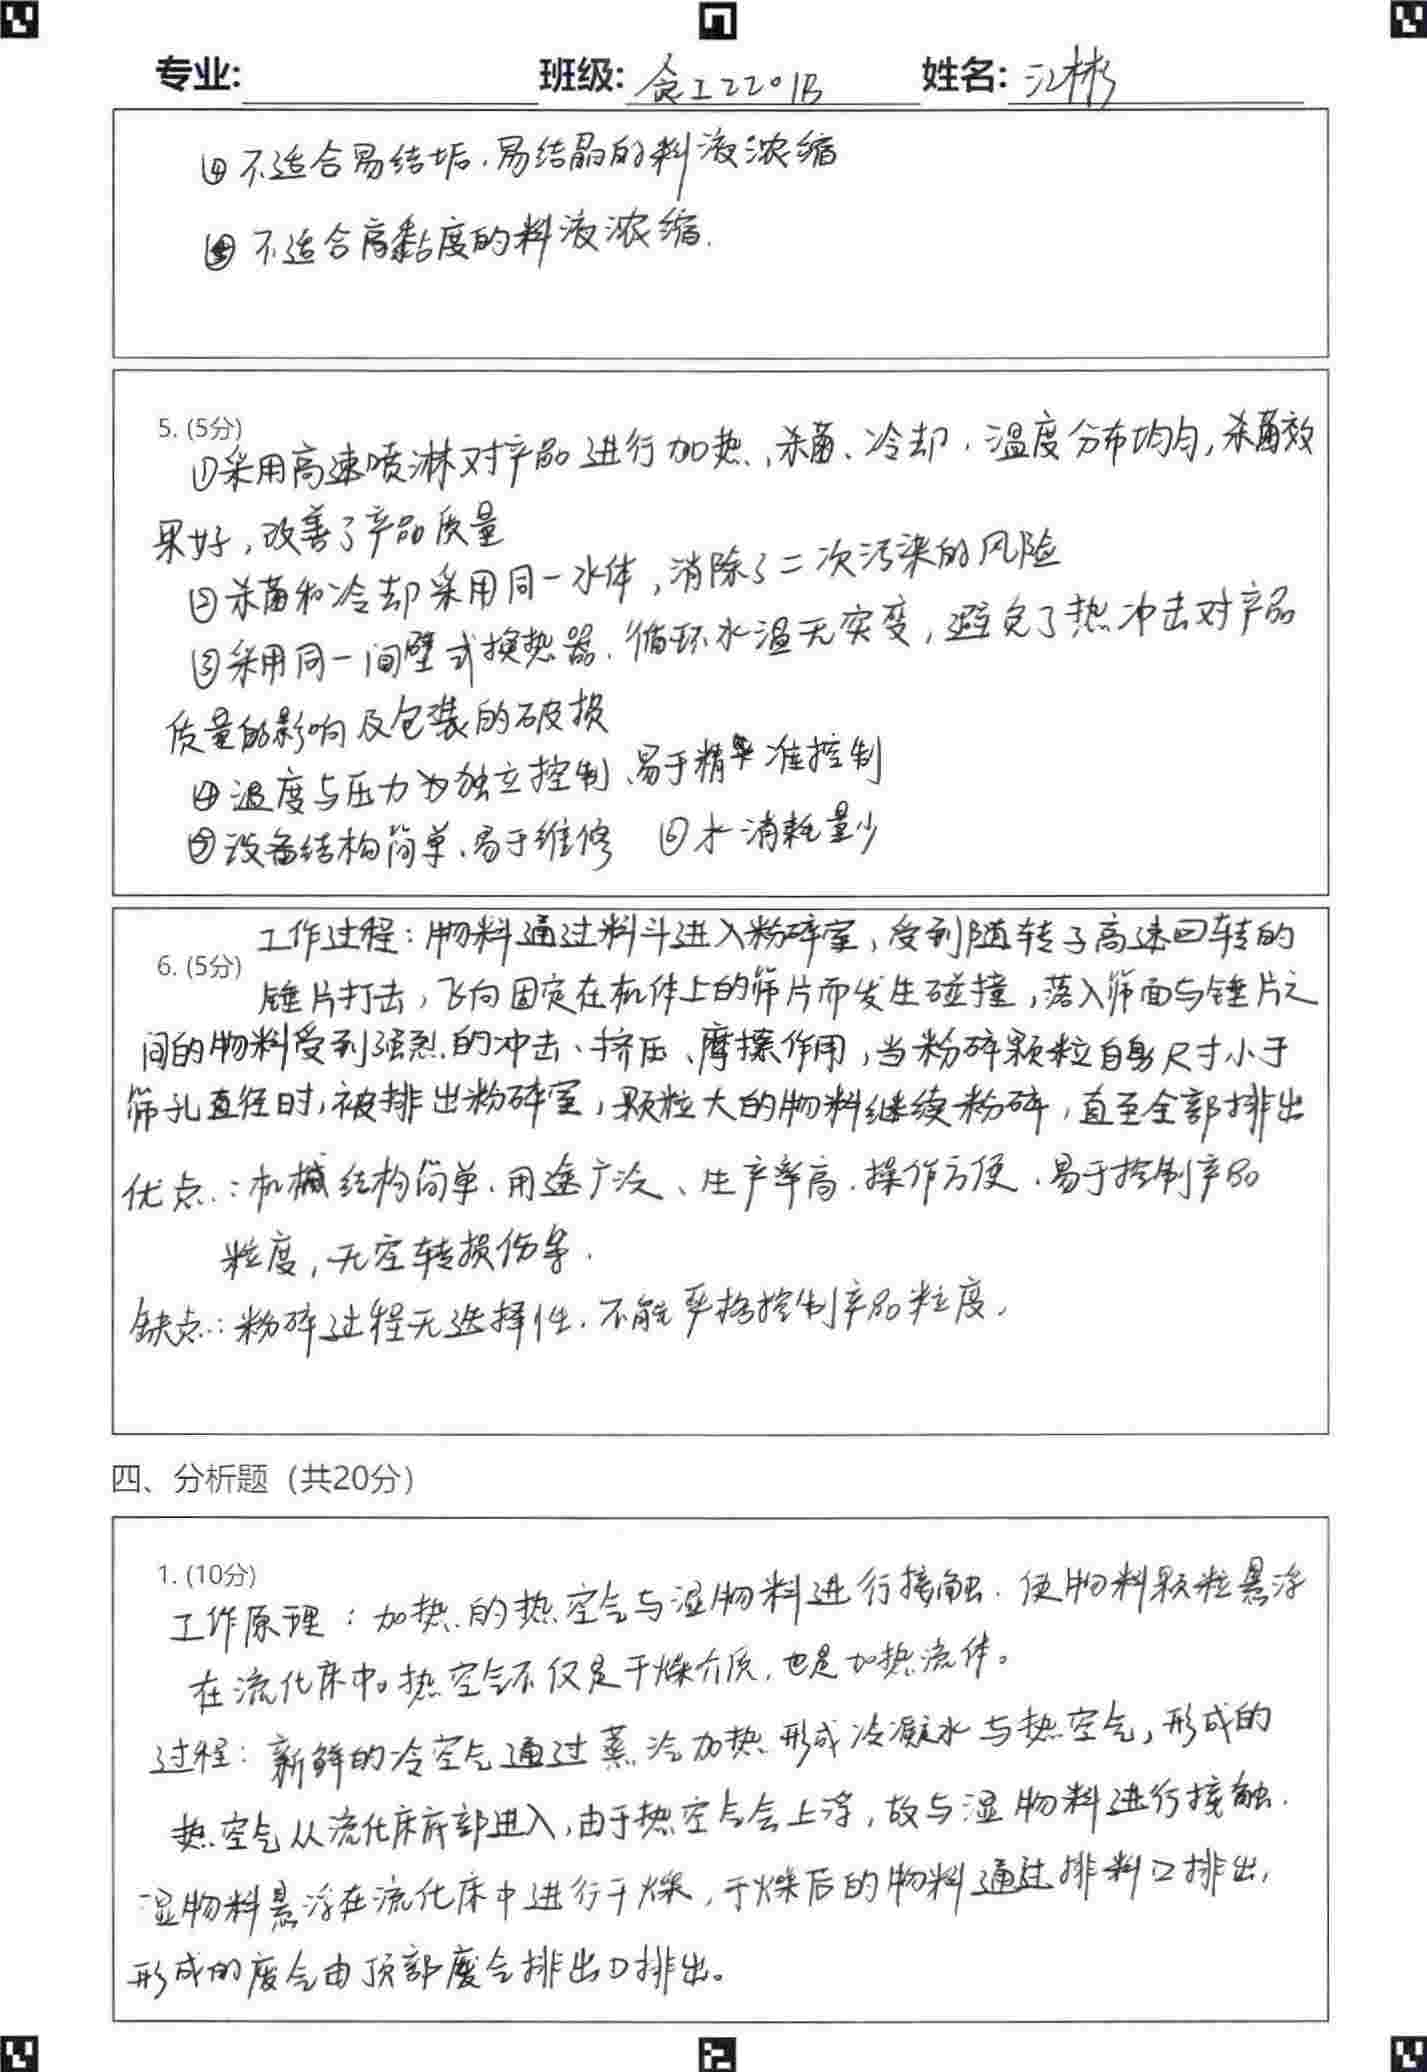 专业: 班级: 食工2201B 姓名: 江彬
④ 不适合易结垢、易结晶的料液浓缩
⑤ 不适合高黏度的料液浓缩.
5. (5分)
①采用高速喷淋对产品进行加热、杀菌、冷却,温度分布均匀,杀菌效
果好,改善了产品质量
②杀菌和冷却采用同一水体,消除了二次污染的风险
③采用同一间壁式换热器,循环水温无突变,避免了热冲击对产品
质量的影响及包装的破损
④温度与压力为独立控制、易于精准控制
⑤设备结构简单、易于维修 ⑥水消耗量少
工作过程:物料通过料斗进入粉碎室,受到随转子高速回转的
6. (5分)
锤片打击,飞向固定在机体上的筛片而发生碰撞,落入筛面与锤片之
间的物料受到强烈的冲击、挤压、摩擦作用,当粉碎颗粒自身尺寸小于
筛孔直径时,被排出粉碎室,颗粒大的物料继续粉碎,直至全部排出
优点:机械结构简单、用途广泛、生产率高、操作方便、易于控制产品
粒度,无空转损伤等.
缺点:粉碎过程无选择性、不能严格控制产品粒度.
四、分析题(共20分)
1. (10分)
工作原理:加热的热空气与湿物料进行接触.使物料颗粒悬浮
在流化床中。热空气不仅是干燥介质,也是加热流体。
过程:新鲜的冷空气通过蒸汽加热形成冷凝水与热空气,形成的
热空气从流化床底部进入,由于热空气会上浮,故与湿物料进行接触.
湿物料悬浮在流化床中进行干燥,干燥后的物料通过排料口排出,
形成的废气由顶部废气排出口排出。